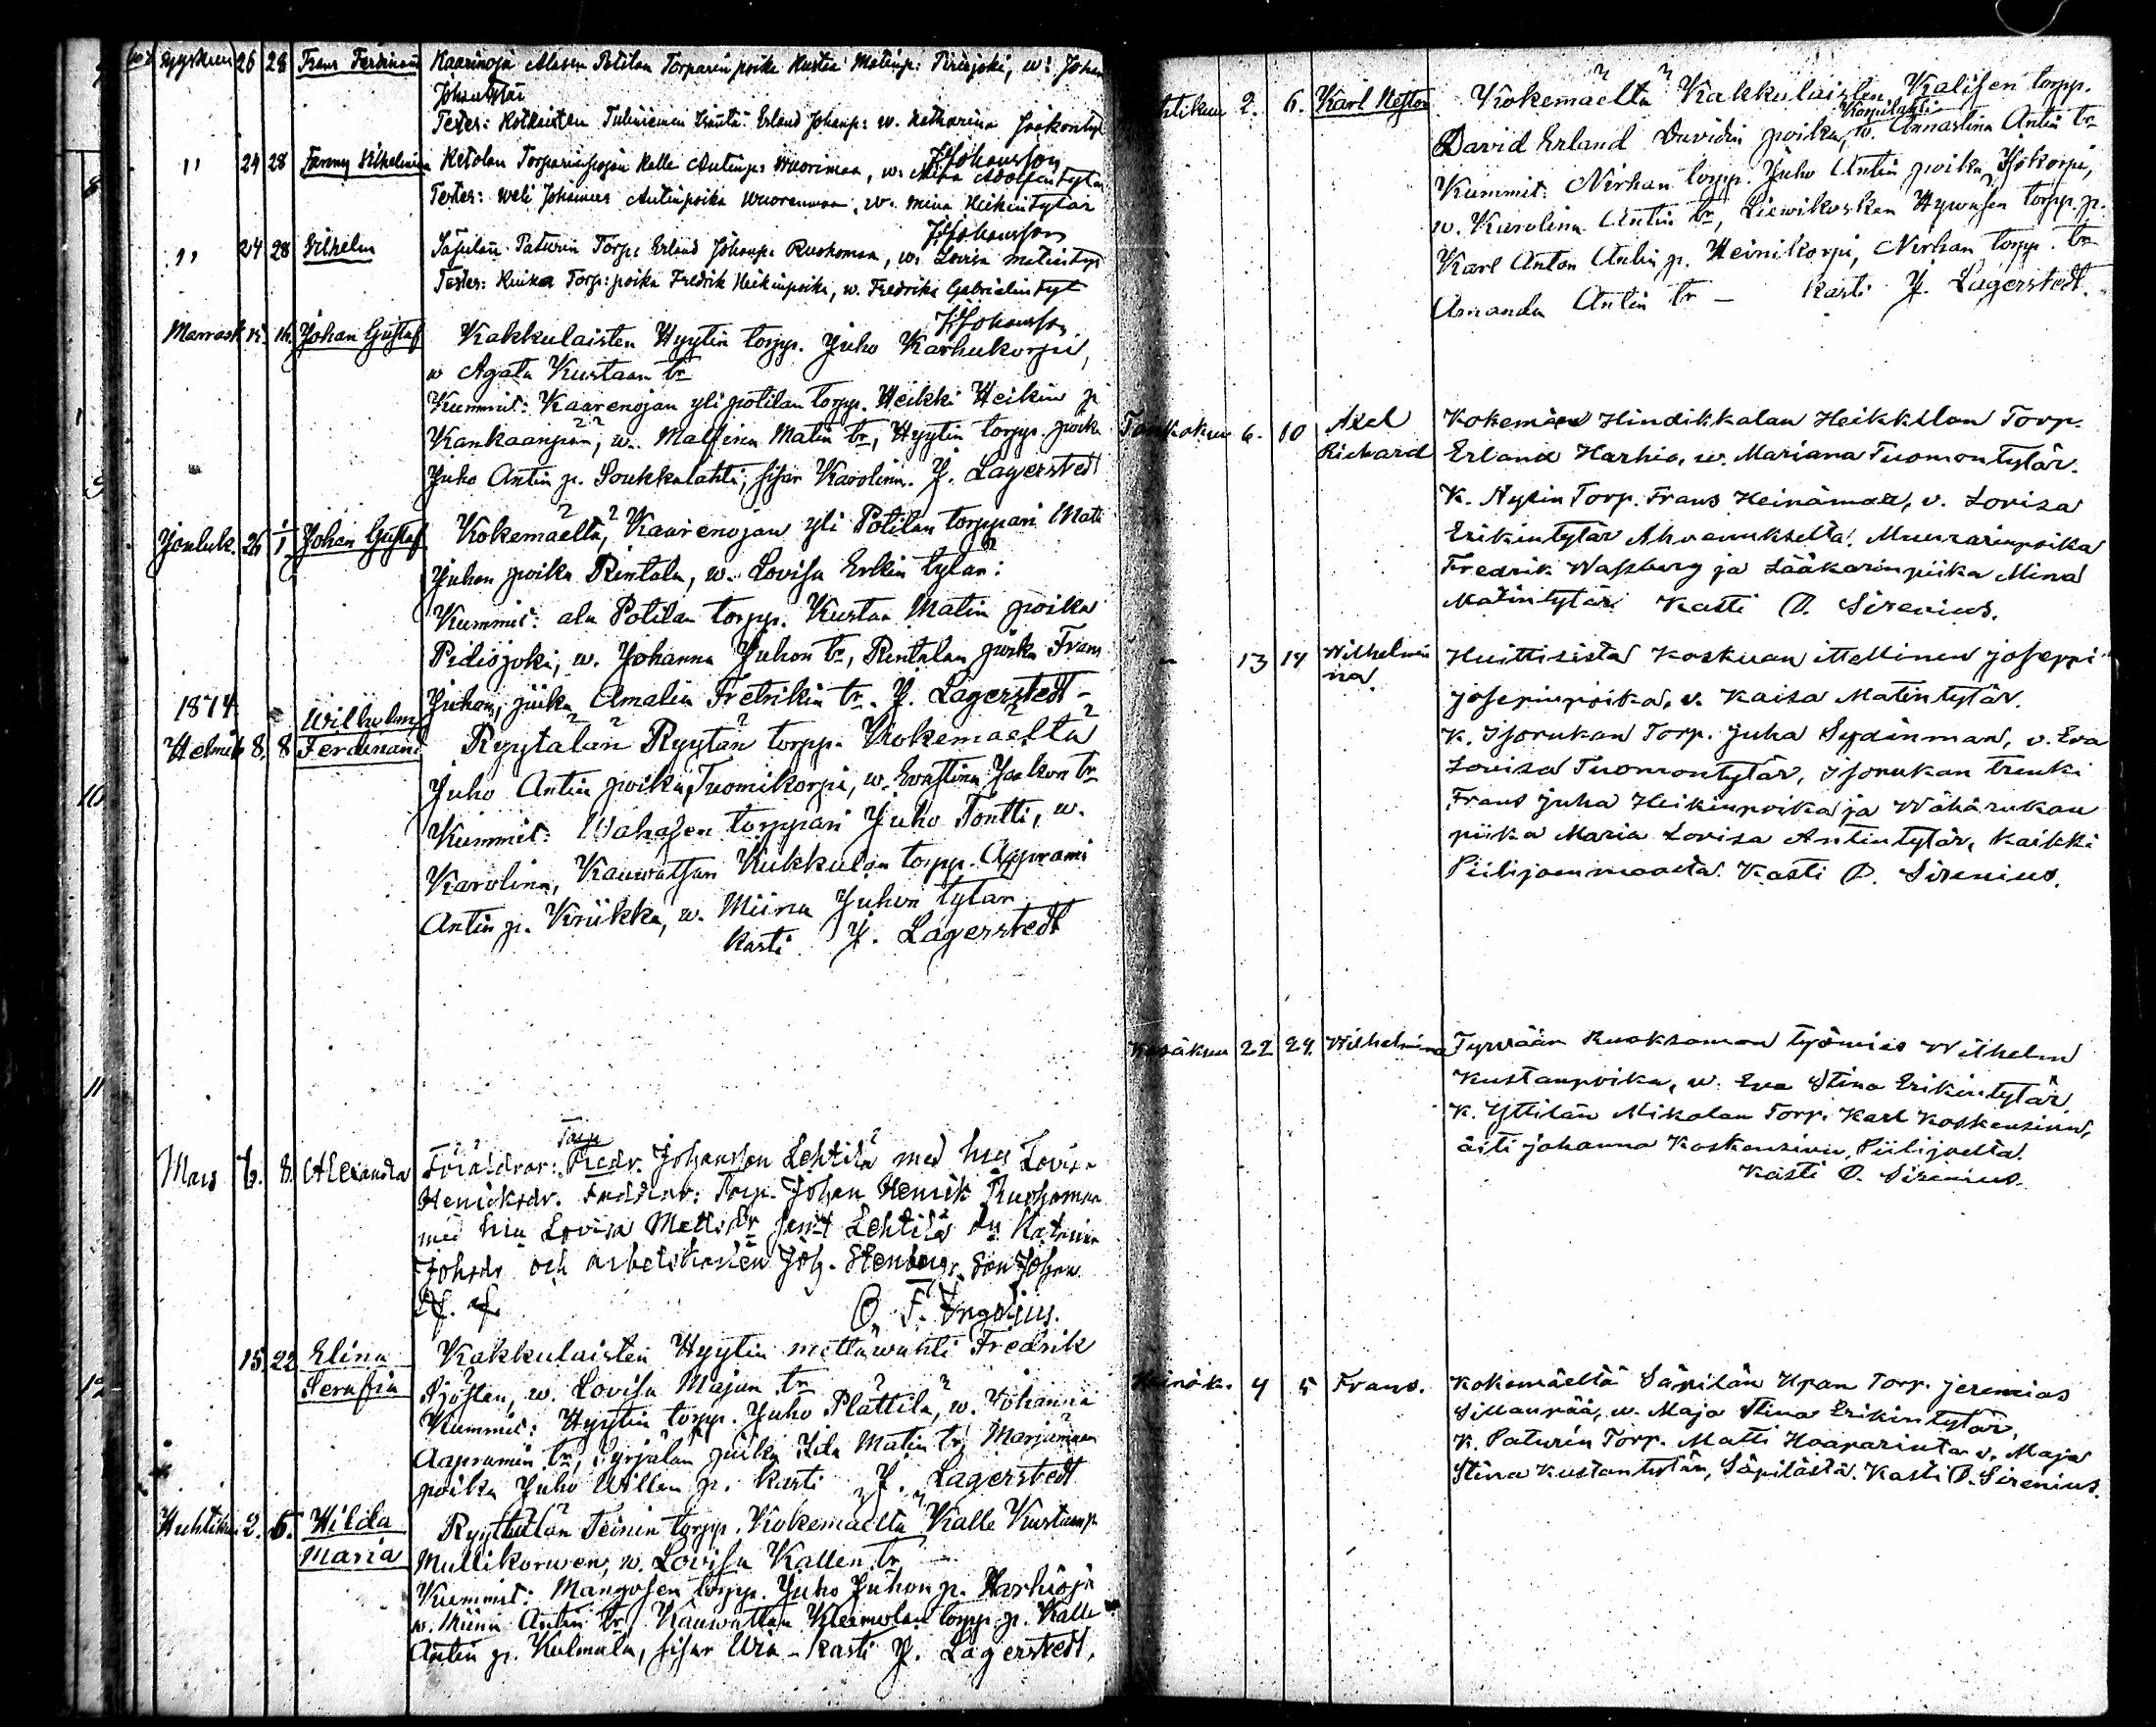 syyskuu 26 28 Frans Ferdinand Kaarinoja Alasen Potilan Torparinpoika Kustaa Matinp: Pirisjoki, w: Johan
Johantytär
Testes: Kotkaisten Tuliniemen Isäntä: Erland Johanp: w. Katharina Jaakontyt
J. Johansson
" 24 28 Fanny Wilhelmina Ketolan Torparinpojan Kalle Antinp: Wuorimaa, w. Miina Adolfintytär
Testes: Weli Johannes Antinpoika Wuorenmaa, w. Miina Heikintytär
J. Johansson
" 24 28 Wilhelm Säpilän Paturin Torp: Erland Johanp: Ruohomaa, w: Lovisa Matintyt
Testes: Torp: poika Fredrik Heikinpoika, w. Fredrika Gabrielintyt
J. Johansson
Marrask. 15. 16. Johan Gustaf Kakkulaisten Hyytin torpp. Juho Karhukorpi,
w Agata Kustaan tr
Kummit: Kaarenojan yli potilan torpp. Heikki Heikin p
Kankaanpää, w. Matin tr, Hyytin torpp. poika
Juho Antin p. Soukkalahti, sisar Karolina. J. Lagerstedt
Jouluk. 26 1/1 Johan Gustaf Kokemäeltä, Kaarenojan yli Potilan torppari Matti
Juhon poika Rintala, w. Lovisa Erkin tytär:
Kummit: ala Potilan torpp. Kustaa Matin poika
Pidisjoki, w. Johanna Juhon tr, Rintalan poika Frans
Juhan, piika Amalia Fretrikin tr. J. Lagerstedt –
1874
Helmik 8. 8 Wilhelm Ferdinand Ryytälän Ryytän torpp. Kokemäeltä
Juho Antin poika Tuomikorpi, w. Evastina Jaakon tr
Kummit: Wahasen torppari Juho Tontti, w.
Karolina, Kauwatsan Kukkulan torpp. Apprami
Antin p. Kriikka, w. Miina Juhon tytär
Kasti J. Lagerstedt
Mars 6. 8. Alexandra Föräldrar: Torp Fredr. Johansson Lehtilä med hu Lovisa
Henricksdr. Faddrar: Torp. Johan Henrik Ruohomaa
med hu Lovisa Mattsdr samt Lehtilä Katarina
Johsdr och arbetskarlen Joh. Stenberg, son Johan.
O. F. Ingelius.
15 22 Elina Serafia Kakkulaisten Hyytin mettäwahti Fredrik
Sjösten, w. Lovisa Majan tr
Kummit: Hyytin torpp. Juho Plättilä, w. Johanna
Aapramin tr, Syrjälän piika Ida Matin tr, Marjamaan
poika Juho Willen p. Kasti J. Lagerstedt
Huhtikuu 2. 6. Hilda Maria Ryytälän Teinin torpp. Kokemäeltä Kalle Kustaanp
Mullikorwen, w. Lovisa Kallen tr –
Kummit: Mangosen torpp. Juho Juhon p. Harhioja
w. Miina Antin tr, Kauwattan Kleemolan torpp. p. Kalle
Antin p. Kulmala, sisar Wia – Kasti J. Lagerstedt.
htikuu 2. 6. Karl Nestor Kokemäeltä Kakkulaisten Kalisen torpp.
David Erland Davidin poika, Korpilahti w. Annastina Antin tr
Kummit: Nirhan torpp. Juho Antin poika Isokorpi,
w. Karolina Antin tr, Liewikosken Hywösen torpp. p.
Karl Anton Antin p. Heinikorpi, Nirhan torpp. tr
Amanda Antin tr – Kasti J. Lagerstedt.
Toukokuu 6. 10 Axel Richard Kokemäen Hindikkalan Heikkilän Torp.
Erland Harhio, w. Mariana Tuomontytär.
K. Torp. Frans Heinämaa, v. Lovisa
Erikintytär Ahvenukselta. Muurarinpoika
Fredrik Wassburg ja Lääkärinpiika Mina
Matintytär. Kasti O. Sirenius.
" 13 14 Wilhelmina Huittisista Koskuan ittellinen Joseppi
Josepinpoika, v. Kaisa Matintytär.
K. Isorukan Torp. Juha Sydänmaa, v. Eva
Lovisa Tuomontytär, Isorukan trenki
Frans Juha Heikinpoika ja Wähärukan
piika Maria Lovisa Antintytär, kaikki
Piilijoenmaalta. Kasti O. Sirenius.
Kesäkuu 22 24. Wilhelmina Tyrvään Ruoksaman työmies Wilhelm
Kustaanpoika, w. Eva Stina Erikintytär
K. Yttilän Mikolan Torp. Karl Koskensivu,
äiti Johanna Koskensivu, Piilijoelta.
Kasti O. Sirenius.
Heinäk. 4 5 Frans. Kokemäeltä Säpilän Upan Torp. Jeremias
Sillanpää, w. Maja Stina Erikintytär,
K. Paturin Torp. Matti Haaparinta v. Maja
Stina Kustantytär, Säpilästä. Kasti O. Sirenius.